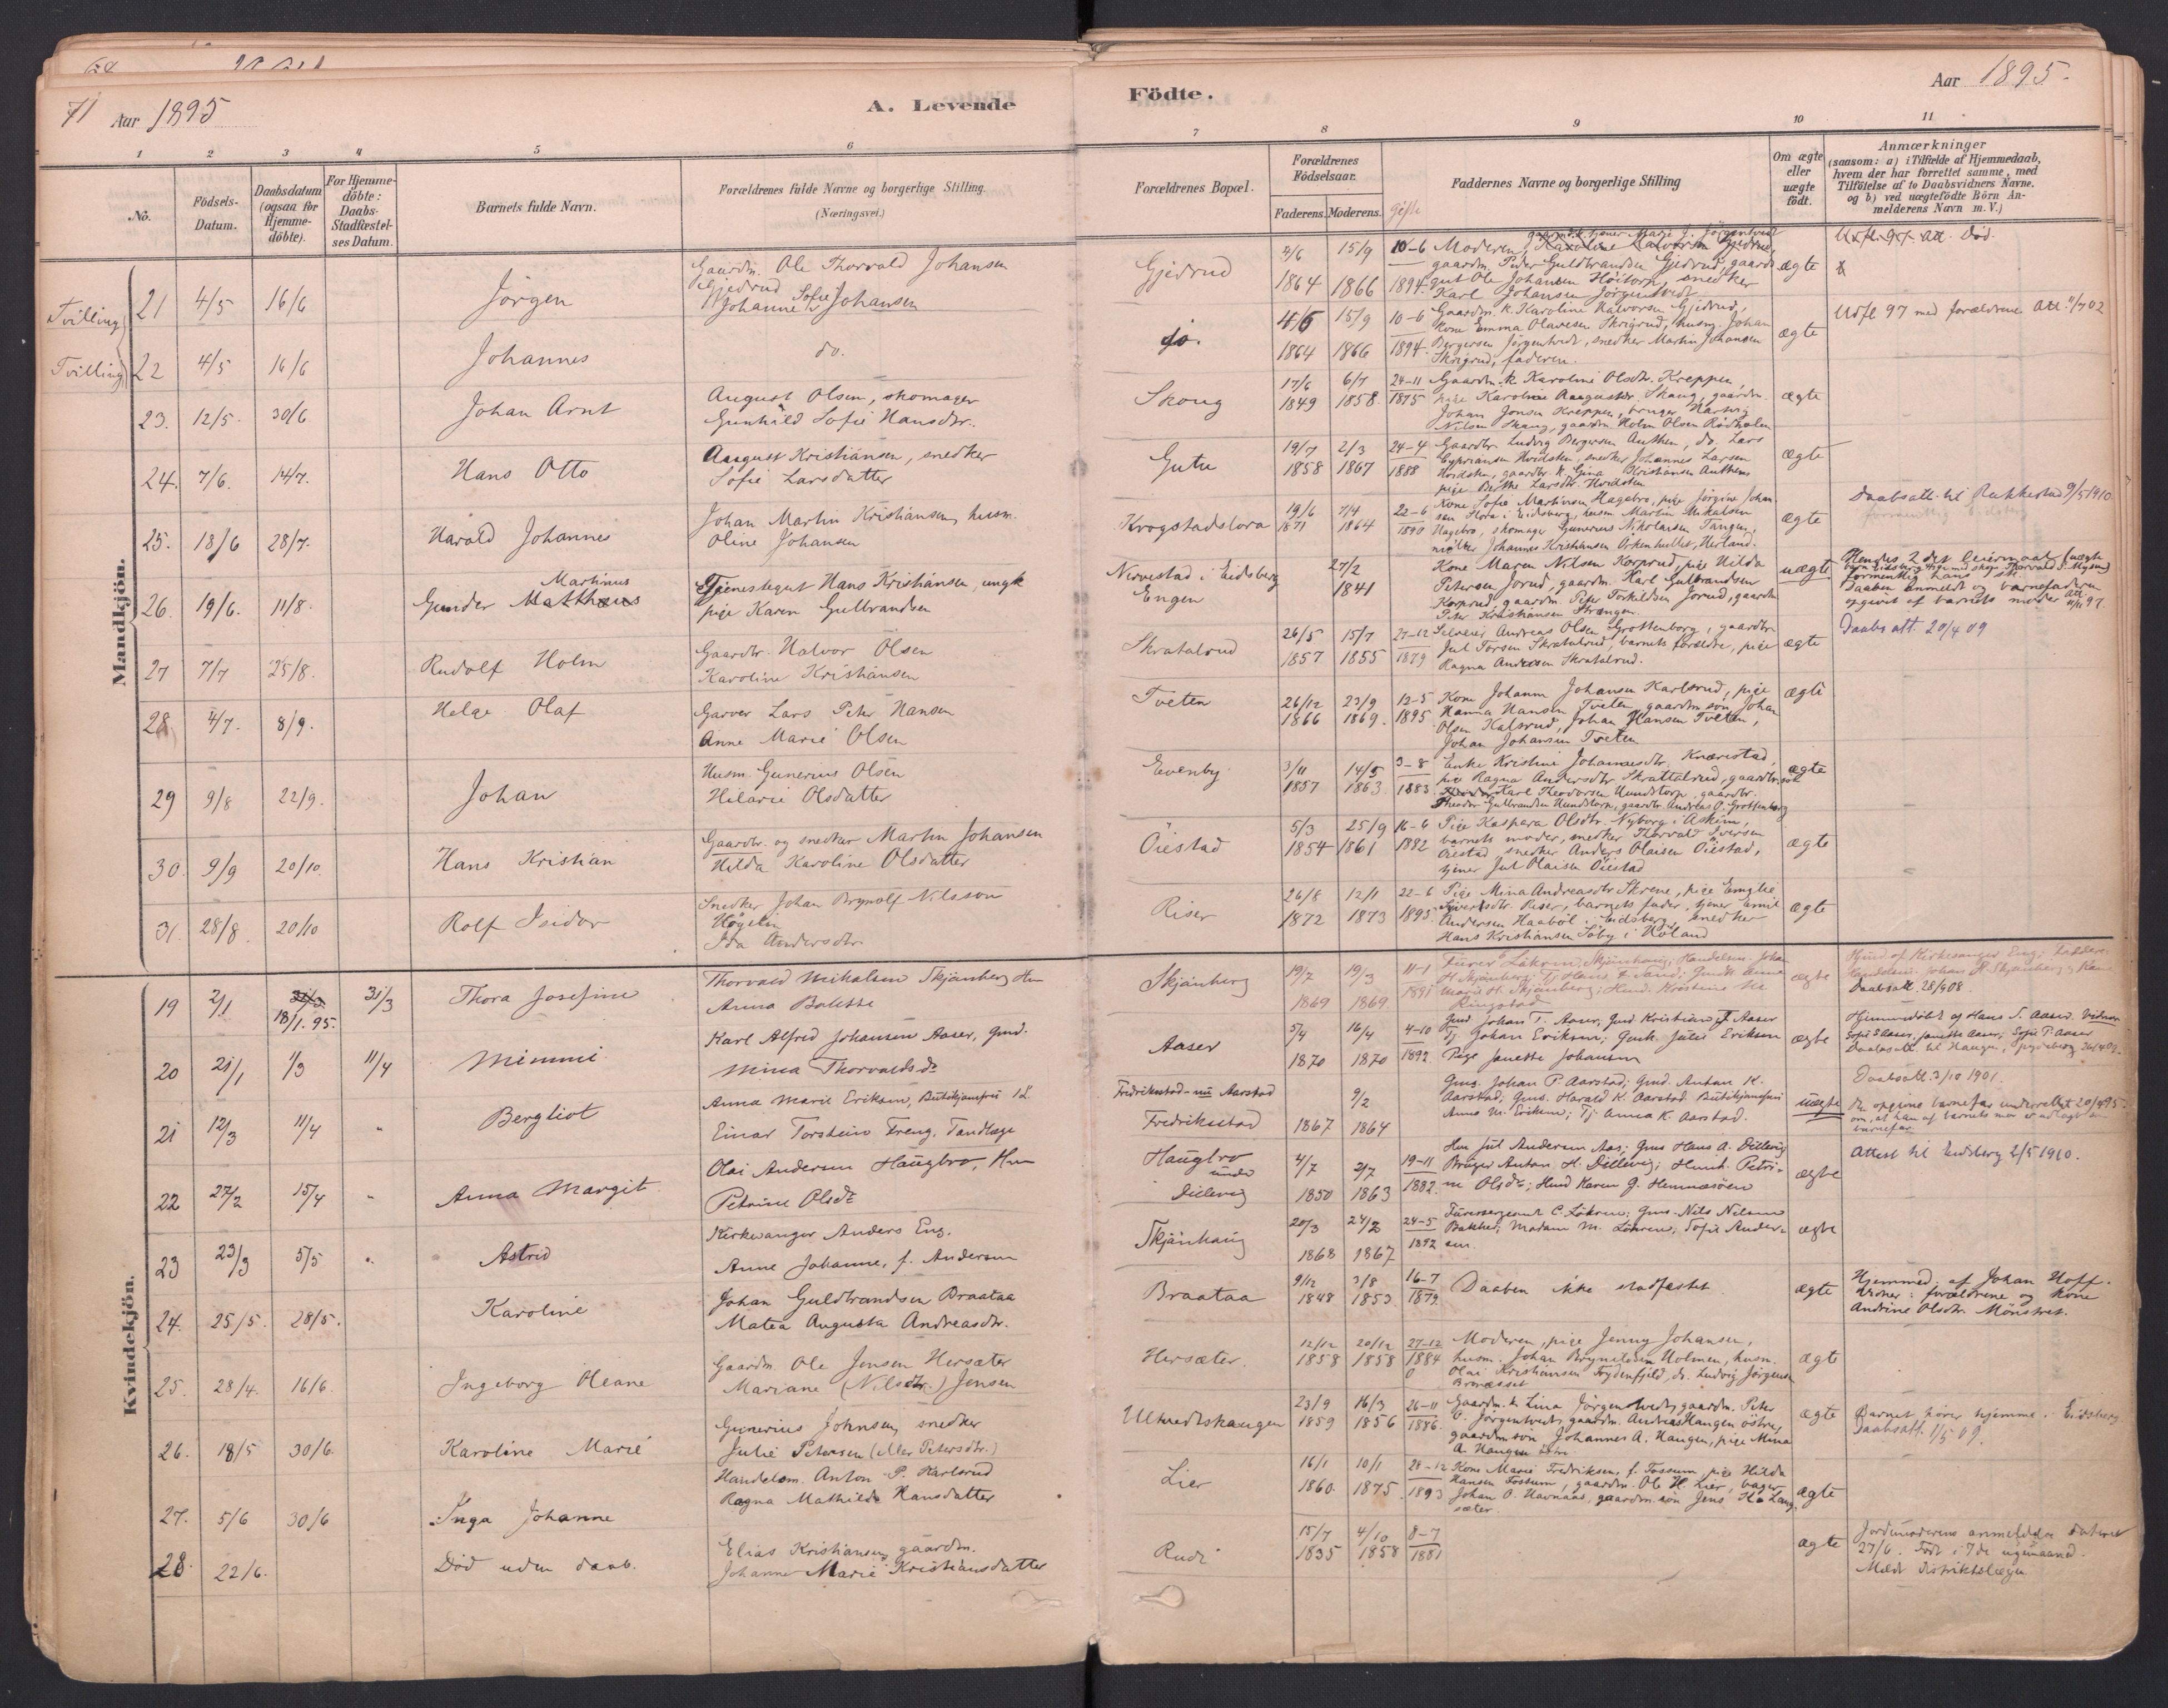 71 Aar 1895
A. Levende
1 2 3 4 5 6
No.
Födsels-
Datum.
Daabsdatum
(ogsaa for
Hjemme-
döbte).
For Hjemme-
döbte:
Daabs-
Stadfæstel-
ses Datum.
Barnets fulde Navn.
Forældrenes fulde Navne og borgerlige Stilling.
(Næringsvei.)
Mandkjön.
Tvilling 21 4/5 16/6 Jörgen
Gaardm. Ole Thorvald Johansen
Gjedrud
Johanne Sofie Johansen
Tvilling 22 4/5 16/6 Johannes do.
23. 12/5. 30/6 Johan Arnt
August Olsen, skomager
Gunhild Sofie Hansdtr.
24. 7/6. 14/7. Hans Otto
August Kristiansen, snedker
Sofie Larsdatter
25. 18/6 28/7. Harald Johannes
Johan Martin Kristiansen, husm.
Oline Johansen
Martinus
26. 19/6. 11/8. Gunder Matthæus
Tjenestegut Hans Kristiansen, ungk
pige Karen Gulbrandsen
27 7/7 25/8. Rudolf Holm
Gaardbr. Halvor Olsen
Karoline Kristiansen
28 4/7. 8/9. Helge Olaf
Garver Lars Peter Hansen
Anne Marie Olsen
29 9/8 22/9. Johan
Husm. Gunerius Olsen
Hilarie Olsdatter
30. 9/9 20/10 Hans Kristian
Gaardbr. og snedker Martin Johansen
Hilda Karoline Olsdatter
31. 28/8. 20/10 Rolf Isidor
Snedker Johan Brynolf Nilsson
Högelin
Ida Andersdtr.
Kvindekjön.
19 2/1 31/3 18/1.95. 31/3 Thora Josefine
Thorvald Mikalsen Skjönberg Hm
Anna Bolette
20 21/1 1/3 11/4 Mimmi
Karl Alfred Johansen Aaser, Gmd.
Mina Thorvaldsdr
21 12/3 11/4 " Bergliot
Anna Marie Eriksen, Butikjomfru
Einar Torstein Freng, Tandlæge
22 27/2 15/4 " Anna Margit
Olai Andersen Haugbro, Hm
Petrine Olsdr
23 23/3 5/5 " Astrid
Kirkesanger Anders Eng.
Anne Johanne, f. Andersen
24. 25/5. 28/5. Karoline
Johan Guldbrandsen Braataa
Matea Augusta Andreasdtr.
25. 28/4. 16/6. Ingeborg Oleane
Gaardm. Ole Jensen Hersæter
Mariane (Nilsdtr.) Jensen
26. 18/5 30/6. Karoline Marie
Gunerius Johnsen, snedker
Julie Petersen (eller Petersdtr.)
27. 5/6 30/6 Inga Johanne
Handelsm. Anton P. Karlsrud
Ragna Mathilde Hansdatter
28. 22/6. Död uden daab.
Elias Kristiansen, gaardm.
Johanne Marie Kristiansdatter
Födte.
Aar 1895.
7 8 9 10 11
Forældrenes Bopæl.
Forældrenes
Födselsaar.
Faderens. Moderens. Gifte
Faddernes Navne og borgerlige Stilling
Om ægte
eller
uægte
födt.
Anmærkninger
(saasom: a) i Tilfælde af Hjemmedaab,
hvem der har forrettet samme, med
Tilföielse af to Daabsvidners Navne.
og b) ved uægtefödte Börn An-
melderens Navn m.V.)
Gjedrud 2/6 1864 15/9 1866 10–6 1894.
Moderen, Karoline Halvorsen Gjedrud,
gaardm. Peder Guldbrandsen Gjedrud, gaard-
gut Ole Johansen Höitorp, snedker
Karl Johansen Jörgentvedt.
ægte
do. 4/6 1864 15/9 1866 10–6 1894.
Gaardm. k. Karoline Halvorsen Gjedrud,
Kone Emma Olavesen Skrigrud, husm. Johan
Bergersen Jörgentvedt, snedker Martin Johansen
Skrigrud, faderen.
ægte
Udfl 97 med forældrene Att. 11/7 02
Skoug 17/6 1849 6/7 1858. 24–11 1875
Gaardm. k Karoline Olsdtr. Kreppen,
pige Karoline Augustsdr. Skaug, gaardm.
Johan Jonsen Kreppen, bruger Hartvig
Nilsen Skaug, gaardm Holm Olsen Rödholen
ægte
Gutu 19/7 1858 2/3 1867 24–4 1888
Gaardbr. Ludvig Bergersen Authen, do. Lars
Cypriansen Hvidsten, snedker Johannes Larsen
Hvidsten, gaardbr. k. Gina Kristiansen Authens
pige Berthe Larsdtr. Hvidsten
ægte
Krogstadslora 19/6 1871 7/4 1864 22–6 1890
Kone Sofie Martinsen Hagebro, pige Jörgine Johan
sen Flora i Eidsberg, husm. Martin Mikalsen
Hagebro, skomager Gunerius Nikolaisen Tangen,
Johannes Kristiansen Orkenhullet, Herland.
ægte
Daabsatt. til Rakkestad 9/5 1910
Nirvestad i Eidsberg
Engen 27/2 1841
Kone Maren Nilsen Korprud, pige Hilda
Petersen Jorud, gaardm. Karl Gulbrandsen
Korprud, gaardm. Peter Torkildsen Jorud, gaardm
Peter Kristiansen Strængen.
uægte.
Hendes 2det leiermaal (uægte
formentlig hans 1ste.
Daaben anmeldt og barnefaderen
opgivet af barnets moder
Skratalrud 26/5 1857 15/7 1855 27–12 1879
Selveier Andreas Olsen Grottenborg, gaardbr.
Jul Torsen Skratalrud, barnets forældre, pige
Ragna Andersen Skratalrud.
ægte
Daabsatt. 20/4 09
Tveten 26/12 1866 23/9 1869. 12–5 1895
Kone Johanne Johansen Karlsrud, pige
Hanna Hansen Tveten, gaardm.søn Johan
Olsen Kalsrud, Johan Hansen Tveten,
Johan Johansen Tveten
ægte
Evenby 3/11 1857 14/5 1863. 3–8 1883.
Enke Kristine Johannesdtr. Knærestad,
pige Ragna Andersdtr Skrattalrud, gaardbr.
Karl Theodorsen Hundstorp, gaardbr.
Theodor Gulbrandsen Hundstorp, gaardbr. Andreas O. Grottenborg
ægte
Öiestad 5/3 1854 25/9 1861 16–6 1882
Pige Kaspara Olsdtr. Nyborg i Askim,
barnets moder, snedker Thorvald Iversen
Öiestad, snedker Anders Olaisen Öiestad,
tjener Jul Olaisen Öiestad
ægte
Riser 26/8 1872 12/1 1873 22–6 1895.
Pige Mina Andreasdtr Skrene, pige Emylie
Sivertsdtr. Riser, barnets fader, tjener Emil
Andersen Haaböl i Eidsberg, snedker
Hans Kristiansen Söby i Höland
ægte
Skjönberg 19/7 1869 19/3 1869. 11–1 1891
ægte
Daabsatt 28/9 08.
Aaser 5/4 1870 16/4 1870 4–10 1892
Gmd Johan T. Aaser, Gmd Kristian T Aaser
Tj Johan Eriksen; Gmk. Julie Eriksen
Pige Janette Johansen
ægte
Hjemmedöbt af Hans S. Aaser. Vidner
Fredriksstad – nu Aarstad
Fredriksstad 1867 9/2 1864
Gms. Johan P. Aarstad; Gmd. Anton K.
Aarstad; Gms. Harald K. Aarstad. Butikjomfru
Anna M. Eriksen; Tj. Anna K. Aarstad.
uægte
Daabsatt. 3/10 1901.
Den opgivne barnefar underrettet 20/4 95
om, at han af barnets mor er udlagt som
barnefar
Haugbro
under
Dillevig 4/7 1850 2/7 1863 19–11 1882.
Hm Jul Andersen Aas; Gms Hans A. Dillevig
Bruger Anton H. Dillevig; Hmk. Petri-
ne Olsdr; Hmd Karen G. Hemnæsöen
ægte
Attest til Eidsberg 2/5 1910.
Skjönhaug 20/3 1868 24/2 1867 24–5 1892
Furersergeant C. Løkren; Gms. Nils Nilsen
Bakkhed; Madam M. Løkren; Sofie Ander-
sen
ægte
Braataa 9/12 1848 3/8 1853 16–7 1879.
Daaben ikke stadfæstet.
ægte
Hjemmed. af Johan Hoff.
Vidner: forældrene og kone
Andrine Olsdtr. Mönstret.
Hersæter. 12/12 1858 20/12 1858 27–12 1884
Moderen, pige Jenny Johansen,
husm. Johan Brynildsen Holmen, husm.
Olai Kristiansen Frydenfjeld, do. Ludvig Jörgensen
ægte
Ultvedtshaugen 23/9 1859 16/3 1856 26–11 1886.
Gaardm. k Lina Jörgentvedt, gaardm. Peter
O. Jörgentvedt, gaardm. Andreas Haugen östre,
gaardm.sön Johannes A. Haugen, pige Mina
A. Haugen östre
ægte
Barnet hører hjemme i Eidsberg
Daabsatt. 1/5 09.
Lier 16/1 1860. 10/1 1875. 28–12 1893
Kone Marie Fredriksen, f. Fossum, pige Hilda
Hansen Fossum, gaardm. Ole H. Lier, bager
Johan O. Havnaas, gaardm. sön Jens H. Lang-
sæter.
ægte
Rudi 15/7 1835 4/10 1858 8–7 1881
ægte
Jordmoderens anmeldelse dateret
27/6. Födt i 7de ugemaaned.
Meldt distriktslægen